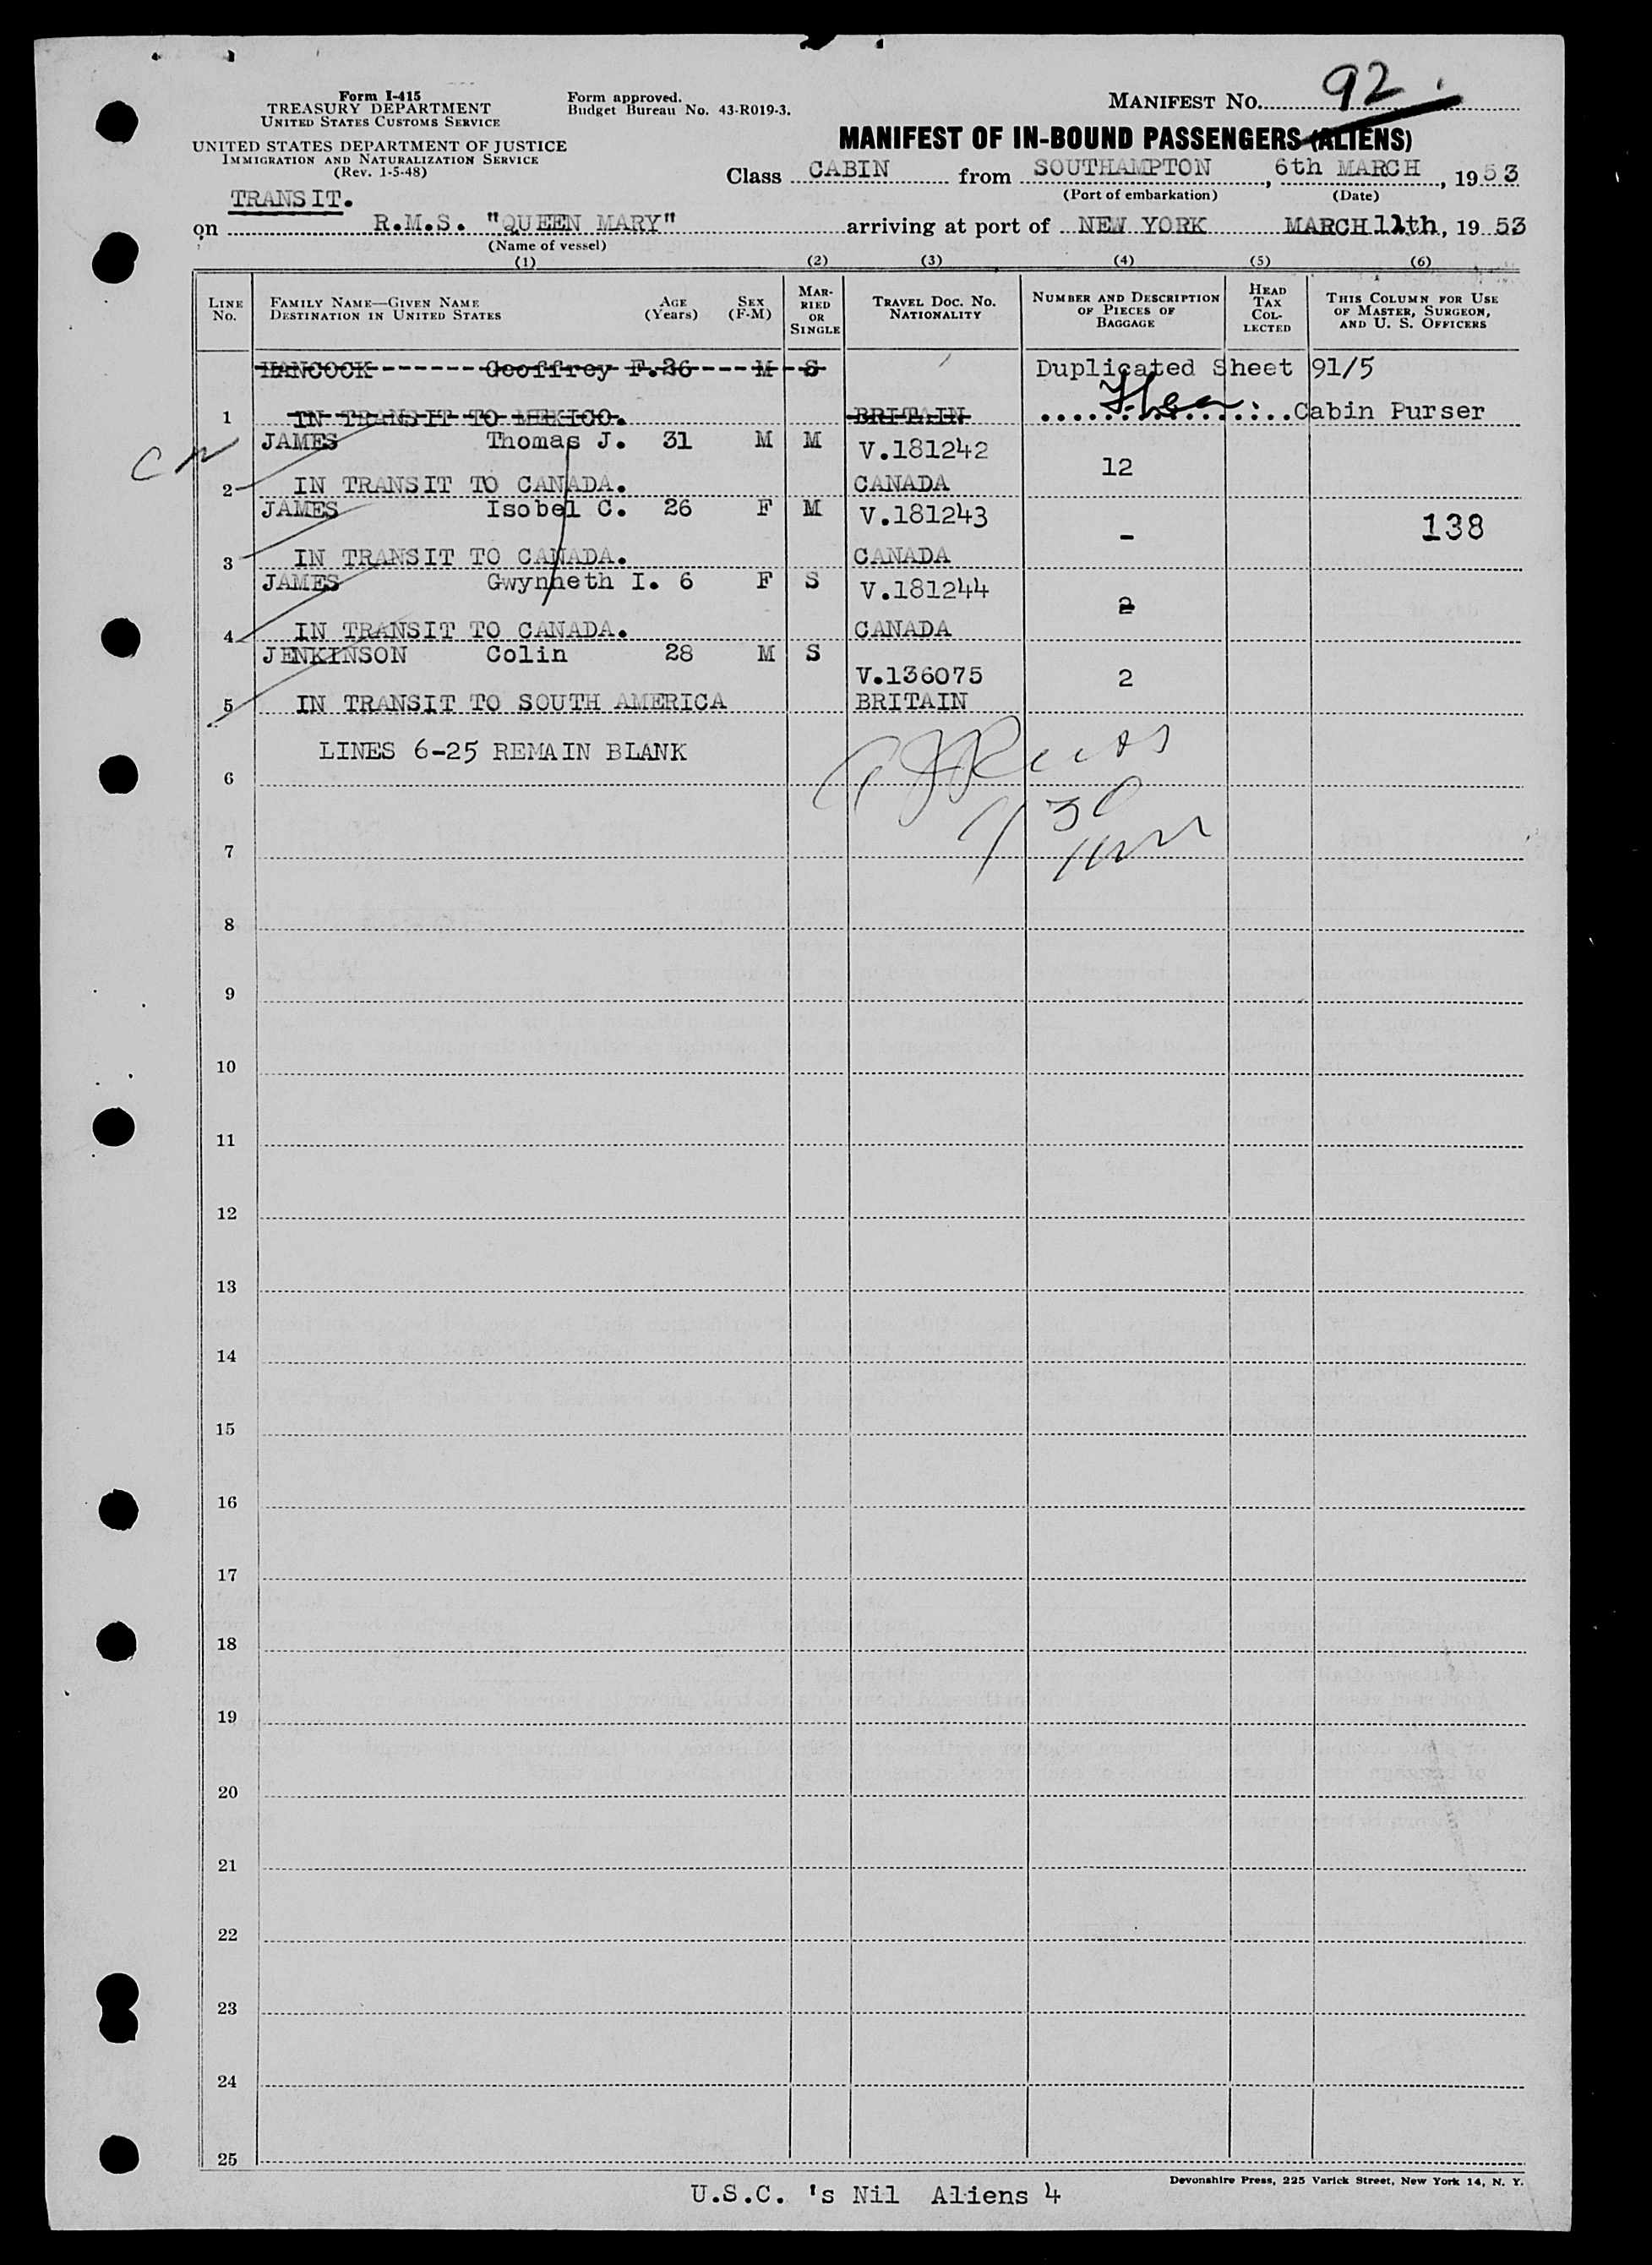 Form I-415
TREASURY DEPARTMENT
UNITED STATES CUSTOMS SERVICE
UNITED STATES DEPARTMENT OF JUSTICE
IMMIGRATION AND NATURALIZATION SERVICE
(Rev. 1-5-48)
Form approved.
Budget Bureau No. 43-R019-3.
MANIFEST NO. 92
MANIFEST OF IN-BOUND PASSENGERS (ALIENS)
Class CABIN from SOUTHAMPTON, 6th MARCH, 1953
(Port of embarkation) (Date)
TRANSIT.
on R.M.S. "QUEEN MARY" arriving at port of NEW YORK MARCH 11th, 1953
(Name of vessel)
(1) (2) (3) (4) (5) (6)
LINE NO. FAMILY NAME—GIVEN NAME DESTINATION IN UNITED STATES AGE (Years) SEX (F-M) MARRIED OR SINGLE TRAVEL DOC. NO. NATIONALITY NUMBER AND DESCRIPTION OF PIECES OF BAGGAGE HEAD TAX COLLECTED THIS COLUMN FOR USE OF MASTER, SURGEON, AND U. S. OFFICERS
HANCOCK Geoffrey F. 26 M S Duplicated Sheet 91/5
1 IN TRANSIT TO MEXICO. BRITAIN Cabin Purser
JAMES Thomas J. 31 M M V.181242 12
2 IN TRANSIT TO CANADA. CANADA
JAMES Isobel C. 26 F M V.181243 - 138
3 IN TRANSIT TO CANADA. CANADA
JAMES Gwynneth I. 6 F S V.181244 2
4 IN TRANSIT TO CANADA. CANADA
JENKINSON Colin 28 M S V.136075 2
5 IN TRANSIT TO SOUTH AMERICA BRITAIN
LINES 6-25 REMAIN BLANK
6
7
8
9
10
11
12
13
14
15
16
17
18
19
20
21
22
23
24
25
Devonshire Press, 225 Varick Street, New York 14, N. Y.
U.S.C. 's Nil Aliens 4